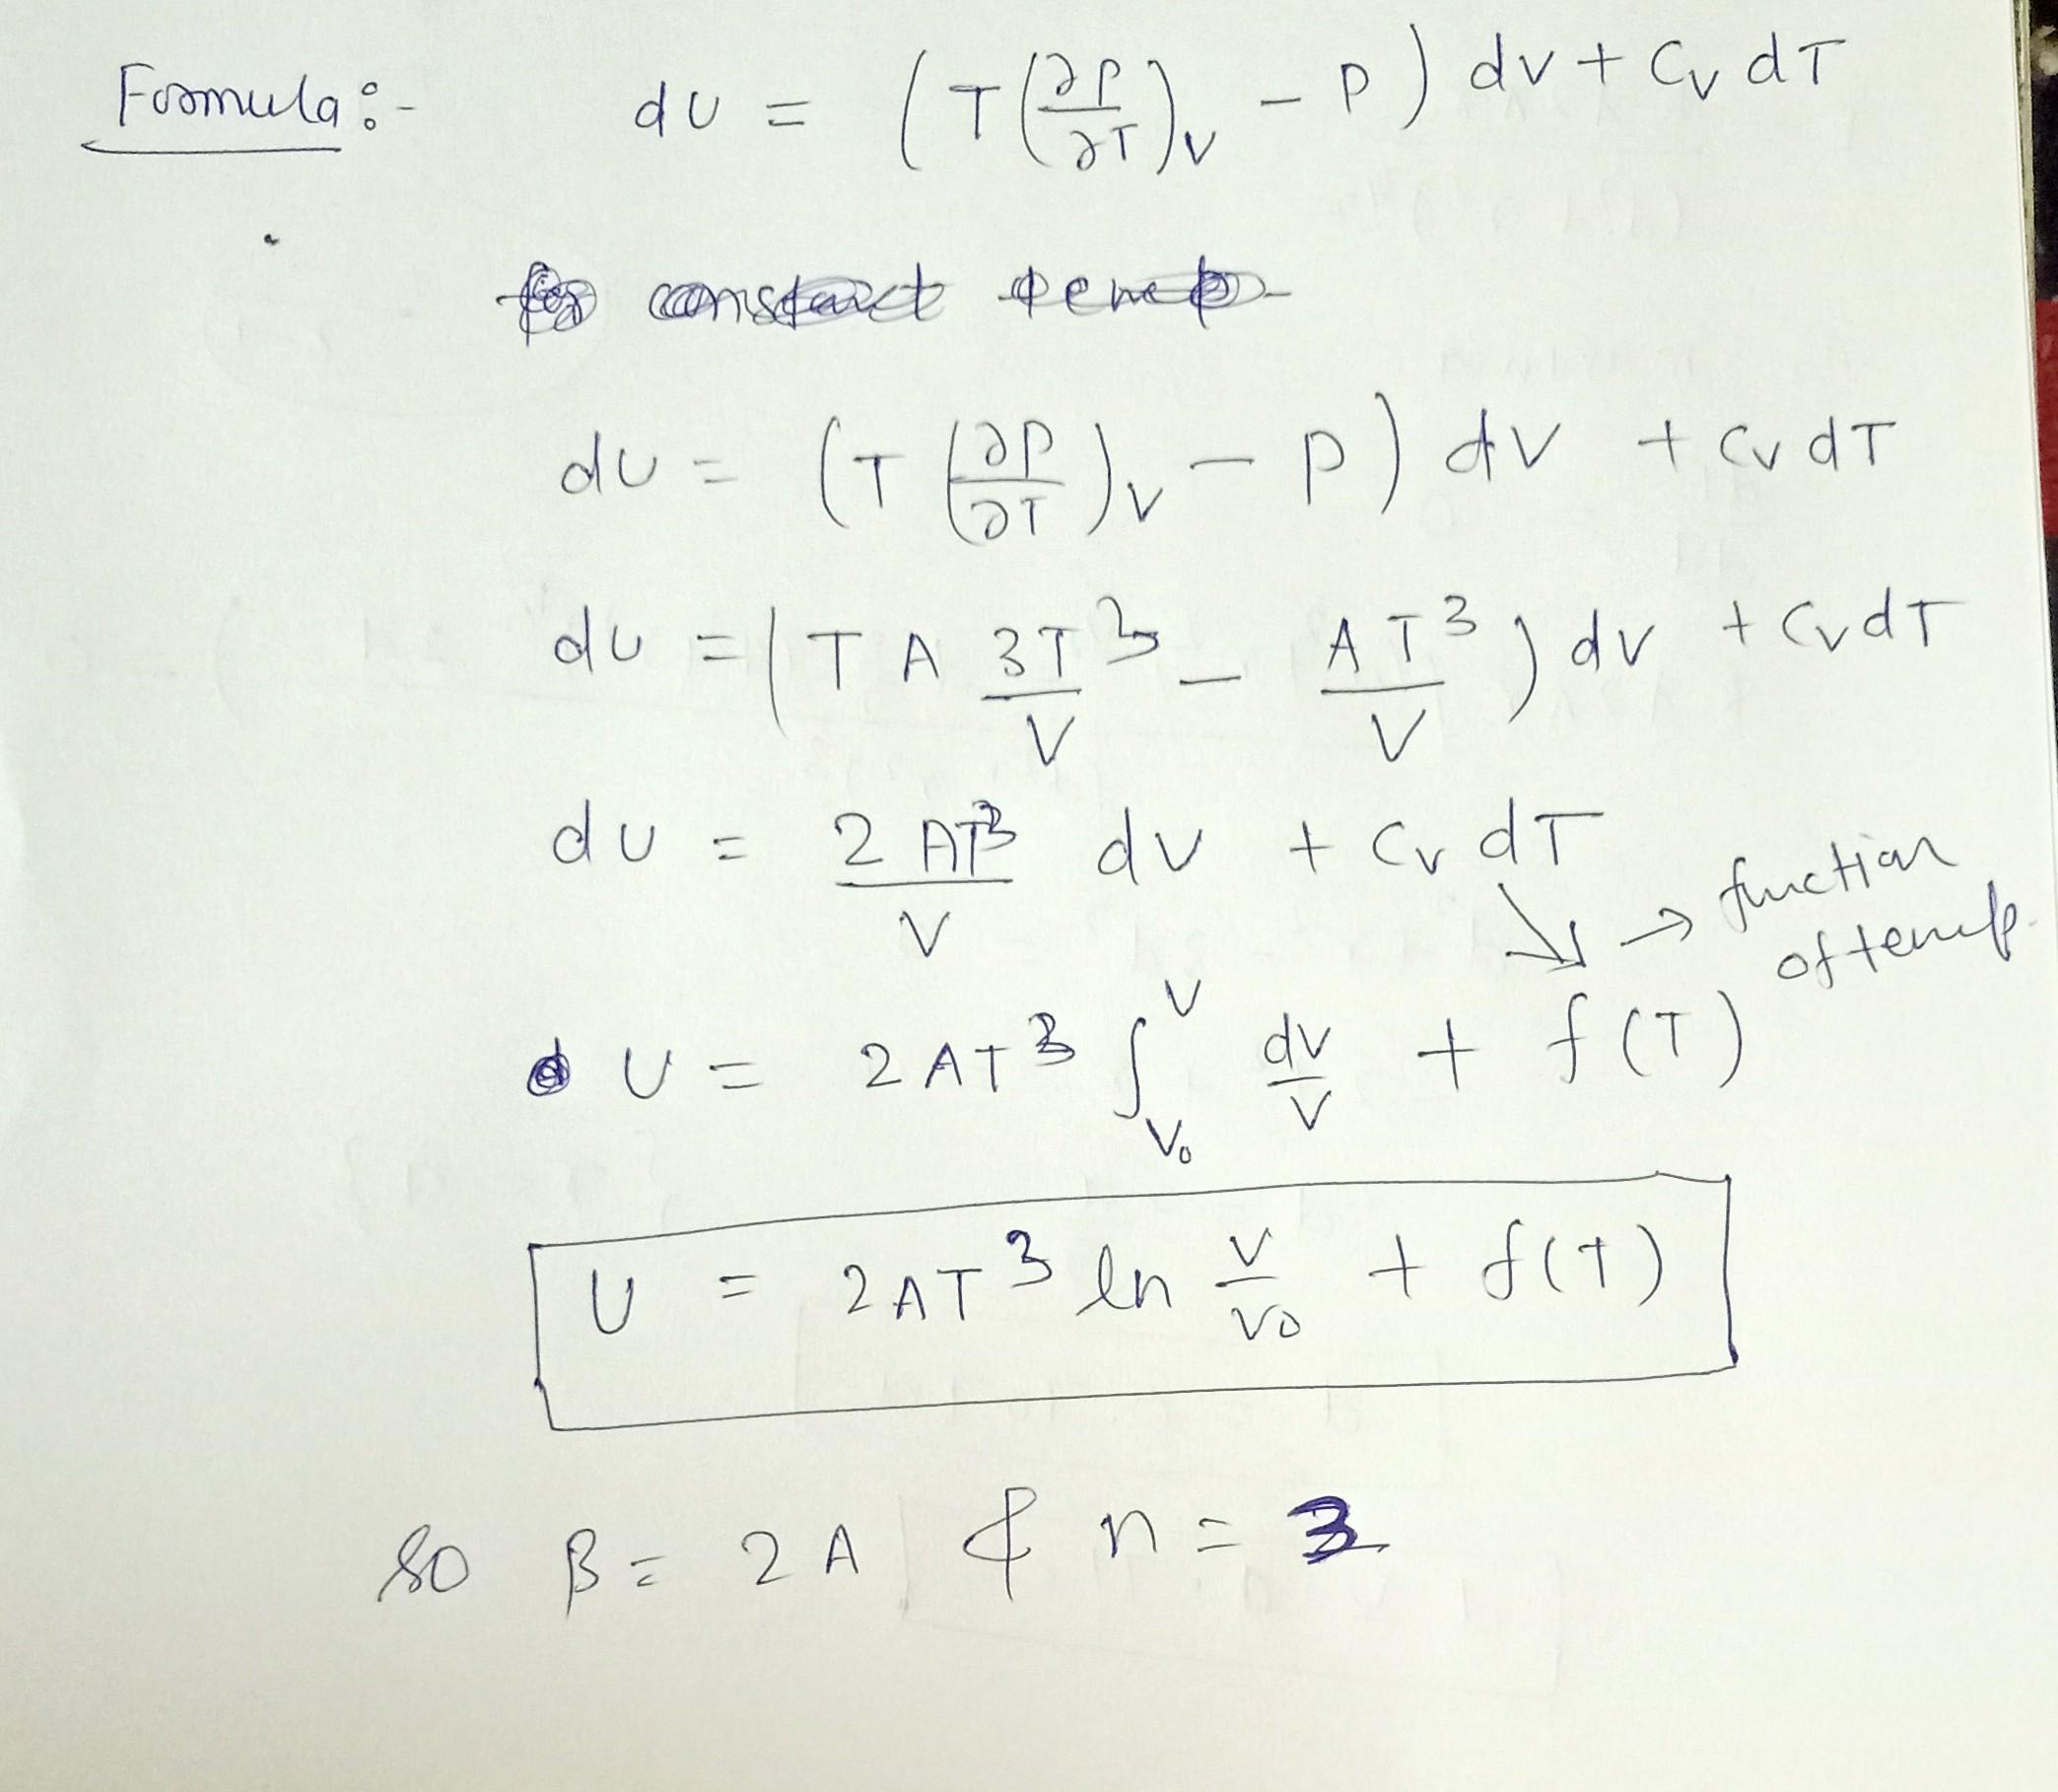 Formula :- dU = (T(∂P/∂T)_V - P) dV + C_V dT
for constant temp
dU = (T (∂P/∂T)_V - P) dV + C_V dT
dU = (T A 3T²/V - AT³/V) dV + C_V dT
dU = 2AT³/V dV + C_V dT
→ function of temp.
U = 2AT³ ∫_{V₀}^{V} dV/V + f(T)
U = 2AT³ ln V/V₀ + f(T)
so B = 2A & n = 3